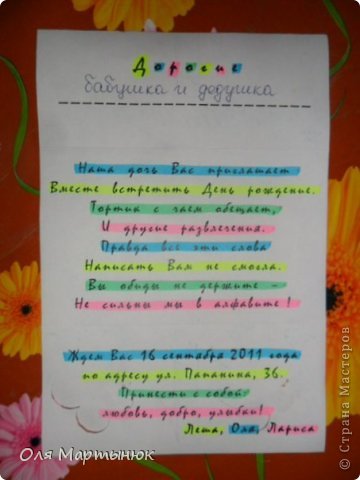 Дорогие
бабушка и дедушка
Наша дочь Вас приглашает
Вместе встретить День рождение.
Тортик с чаем обещает,
И другие развлечения.
Правда все эти слова
Написать Вам не смогла.
Вы обиды не держите –
Не сильны мы в алфавите!
Ждем Вас 16 сентября 2011 года
по адресу ул. Папанина, 36.
Принести с собой
любовь, добро, улыбки!
Леша, Оля, Лариса
Оля Мартынюк
© Страна Мастеров